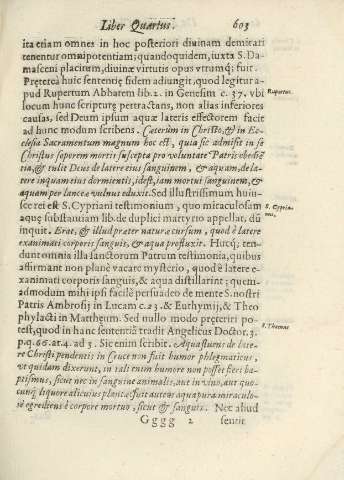 Liber Quartus. 603
ita etiam omnes in hoc posteriori diuinam demirari
tenentur omnipotentiam; quandoquidem, iuxta S. Da-
masceni placitum, diuinæ virtutis opus vtrumq; fuit.
Pręterea huic sententię fidem adiungit, quod legitur a-
pud Rupertum Abbatem lib. 2. in Genesim c. 37. vbi
Rupertus.
locum hunc scripturę pertractans, non alias inferiores
causas, sed Deum ipsum aquæ lateris effectorem facit
ad hunc modum scribens. Cæterùm in Christo, & in Ec-
clesia Sacramentum magnum hoc est, quia sic admisit in se
Christus soporem mortis suscepta pro voluntate Patris obediẽ
tia, & tulit Deus de latere eius sanguinem, & aquam, de la-
tere inquam eius dormientis, idest, iam mortui sanguinem, &
aquam per lancea vulnus eduxit. Sed illustrissimum huiu-
sce rei est S. Cypriani testimonium, quo miraculosam
S. Cypria-
nus.
aquę substantiam lib. de duplici martyrio appellat, dũ
inquit. Erat, & illud præter naturæ cursum, quod è latere
exanimati corporis sanguis, & aqua profluxit. Hucq; ten-
dunt omnia illa sanctorum Patrum testimonia, quibus
affirmant non planè vacare mysterio, quod è latere e-
xanimati corporis sanguis, & aqua distillarint; quem-
admodum mihi ipsi facilè persuadeo de mente S. nostri
Patris Ambrosij in Lucam c. 23. & Euthymij, & Theo
phylacti in Matthęum. Sed nullo modo prętẽriri po-
test, quod in hanc sententiã tradit Angelicus Doctor. 3.
S. Thomas
p. q. 66. ar. 4. ad 3. Sic enim scribit. Aqua fluens de late-
re Christi pendentis in Cruce non fuit humor phlegmaticus,
vt quidam dixerunt, in tali enim humore non posset fieri ba-
ptismus, sicut nec in sanguine animalis, aut in vino, aut quo-
cunq; liquore alicuius plantæ fuit autem aqua pura miraculo-
sè egrediens è corpore mortuo, sicut & sanguis. Nec aliud
Gggg 2 sentit